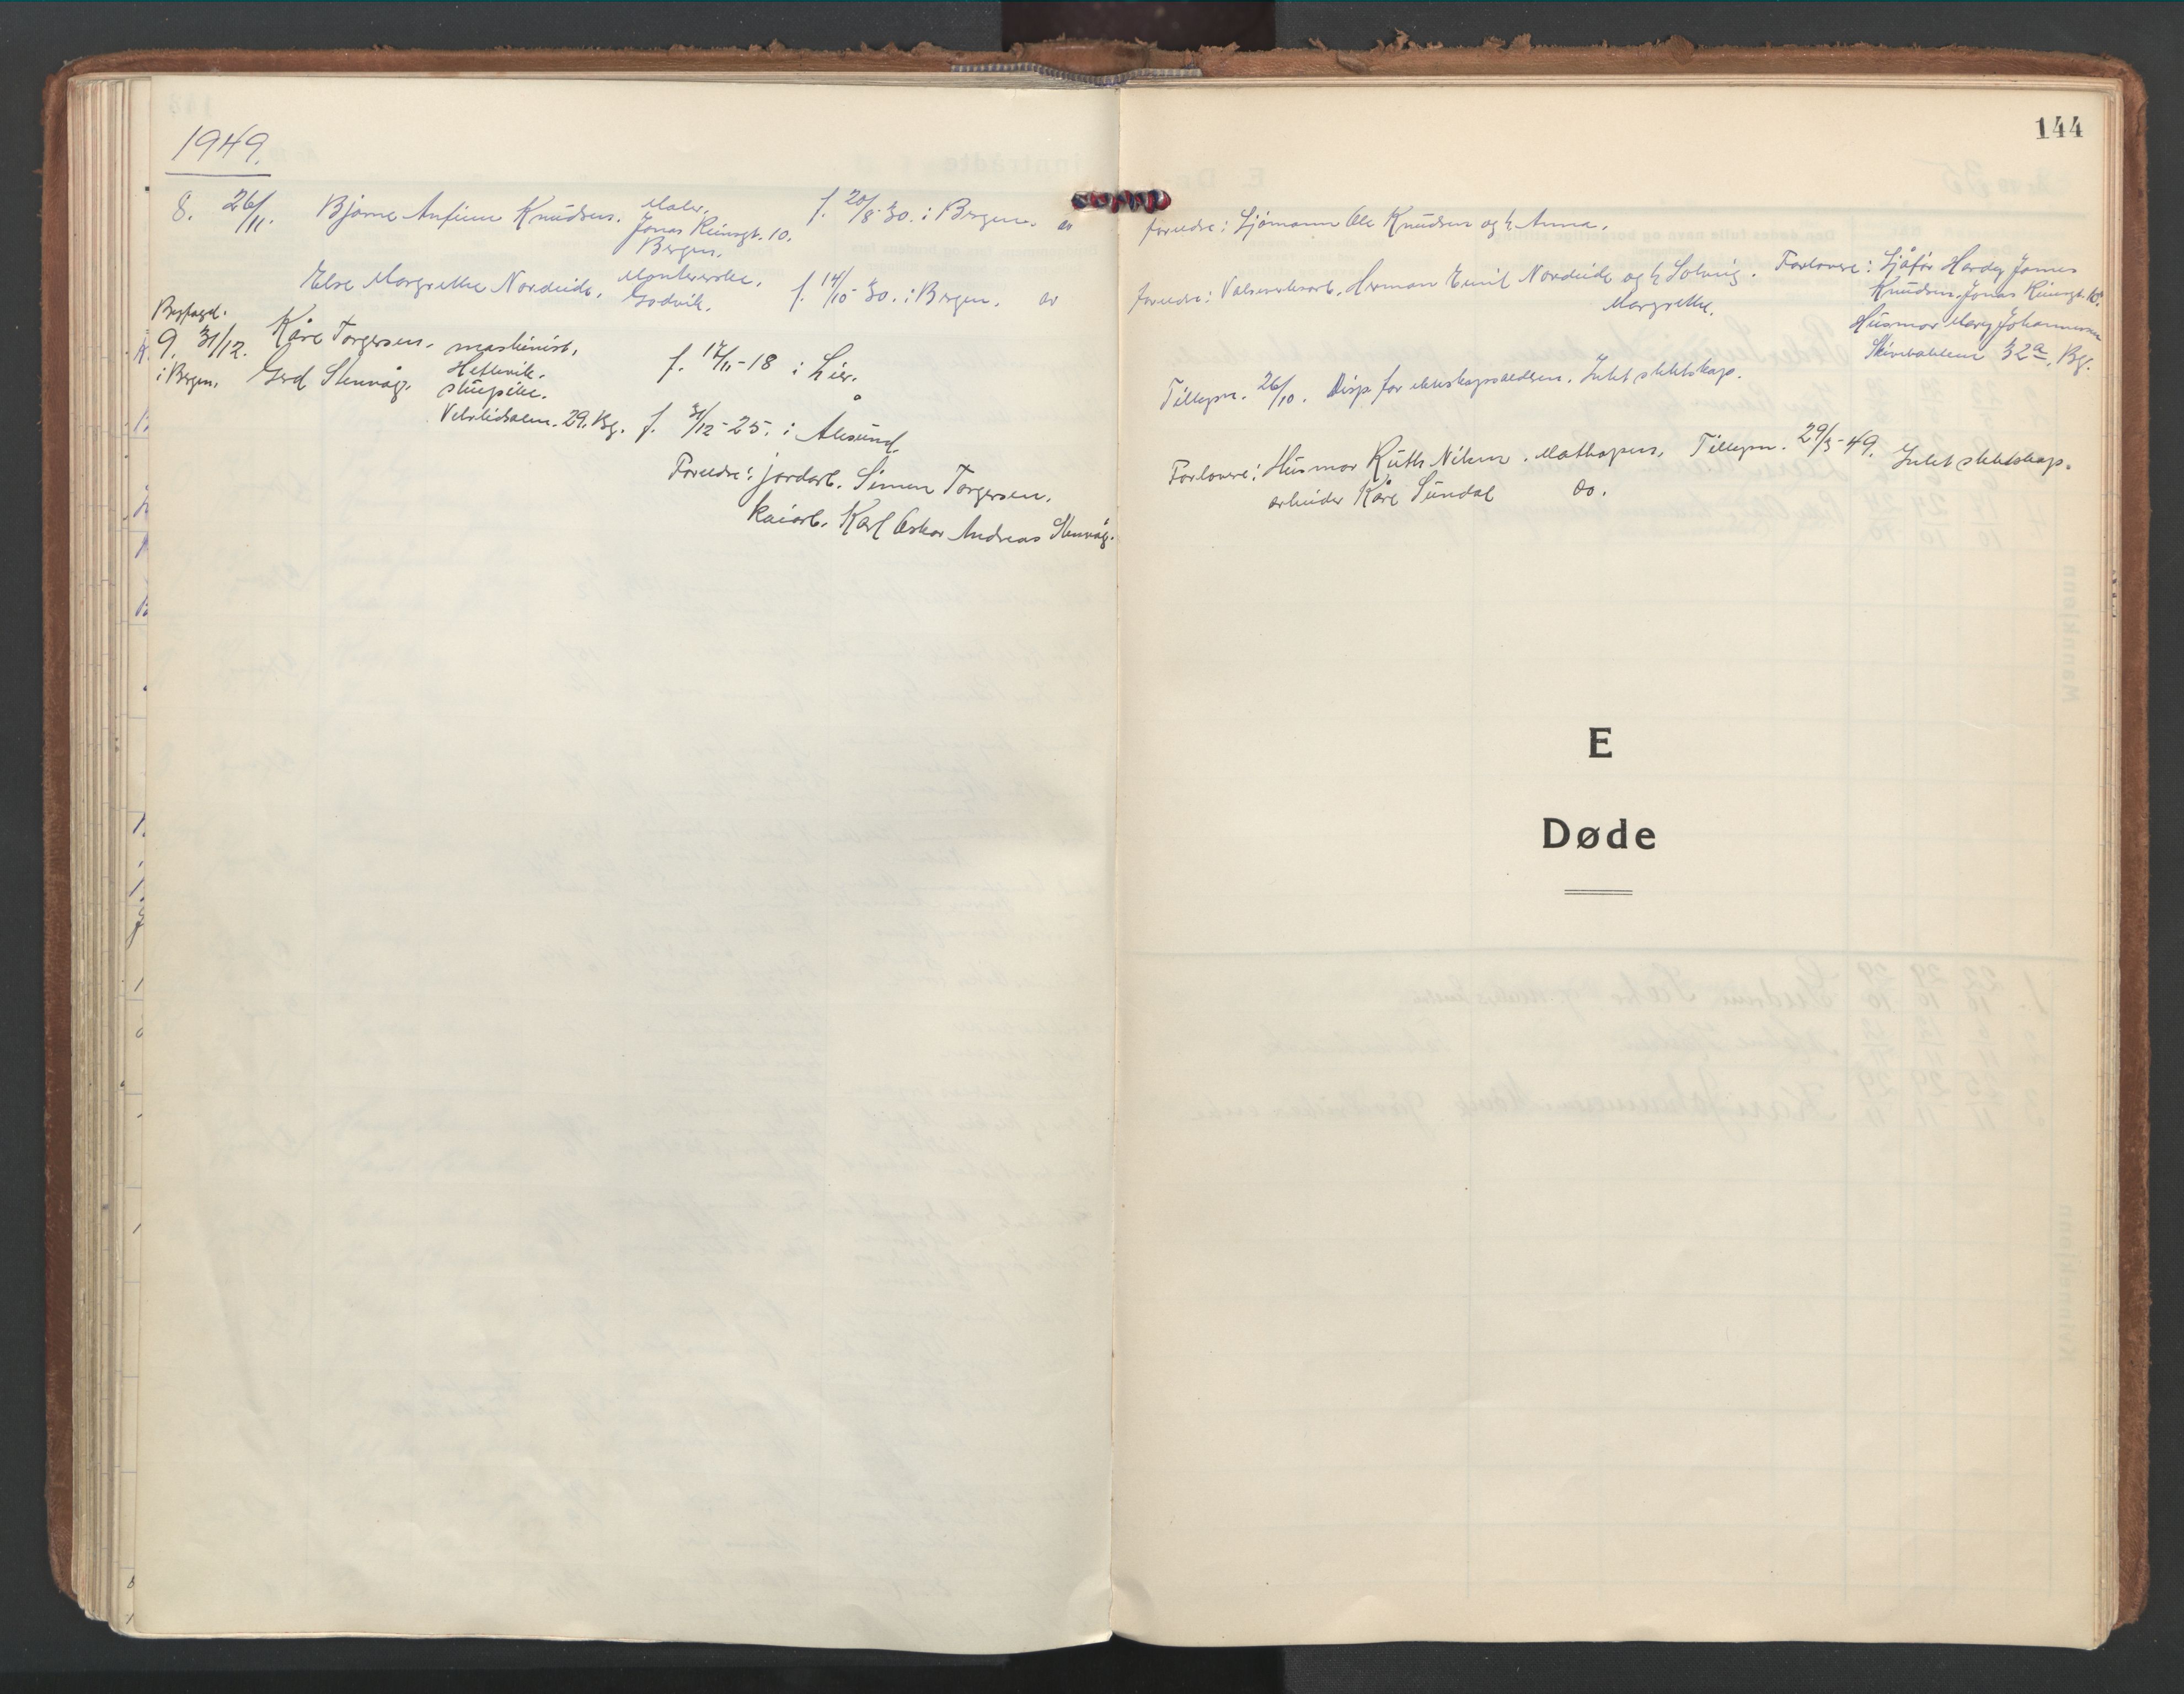 1949.
144
8. 26/11. Bjarne Anfinn Knudsen. Maler. f. 20/8-30. i Bergen. av
Jonas Reinsgt. 10.
Bergen.
foreldre: Sjømann Ole Knudsen og h. Anna.
Else Margrethe Nordeide, Monterske. f. 14/10-30. i Bergen. av
Godvik.
foreldre: Valseverksarb. Herman Emil Nordeide og h. Solveig
Margrethe.
Forlovere: Sjåfør Hardy James
Knudsen, Jonas Reinsgt. 10.
Husmor Mary Johannessen
Skivebakken 32a, Bg.
Tillysn. 26/10. Disp for ekteskapsalderen. Intet slektskap.
Byfogd.
9. 31/12. Kåre Torgersen. maskinist, f. 17/11-18 i Lier.
Hetlevik.
i Bergen. Gerd Stenvåg. stuepike.
29. Bg. f. 31/12-25. i Ålesund
Foreldre: jordarb. Simen Torgersen.
kaiarb. Karl Oskar Andreas Stenvåg.
Forlovere: Husmor Ruth Nilsen. Mathopen. Tillysn. 29/3-49. Intet slektskap.
arbeider Kåre Sundal do.
E
Døde